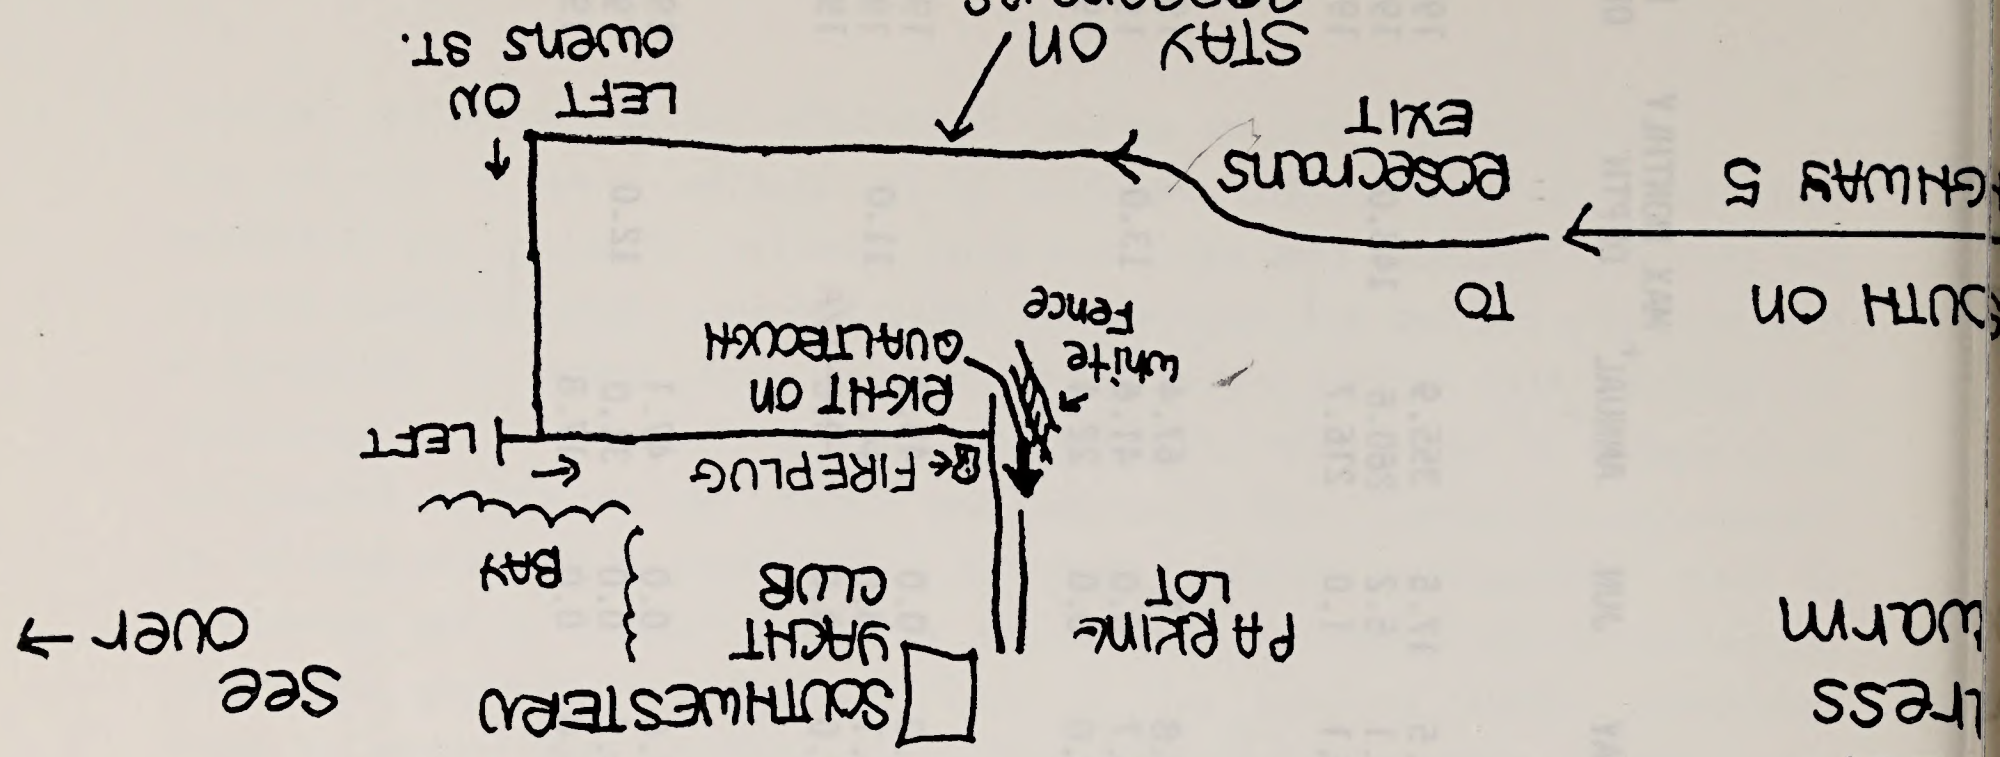 ress
warm
PARKING
LOT
SOUTHWESTERN
YACHT
CLUB
BAY
See
over
FIREPLUG
LEFT
white
Fence
RIGHT ON
QUALTROUGH
OUTH ON
GHWAY 5
TO
Rosecrans
EXIT
STAY ON
LEFT ON
OWENS ST.